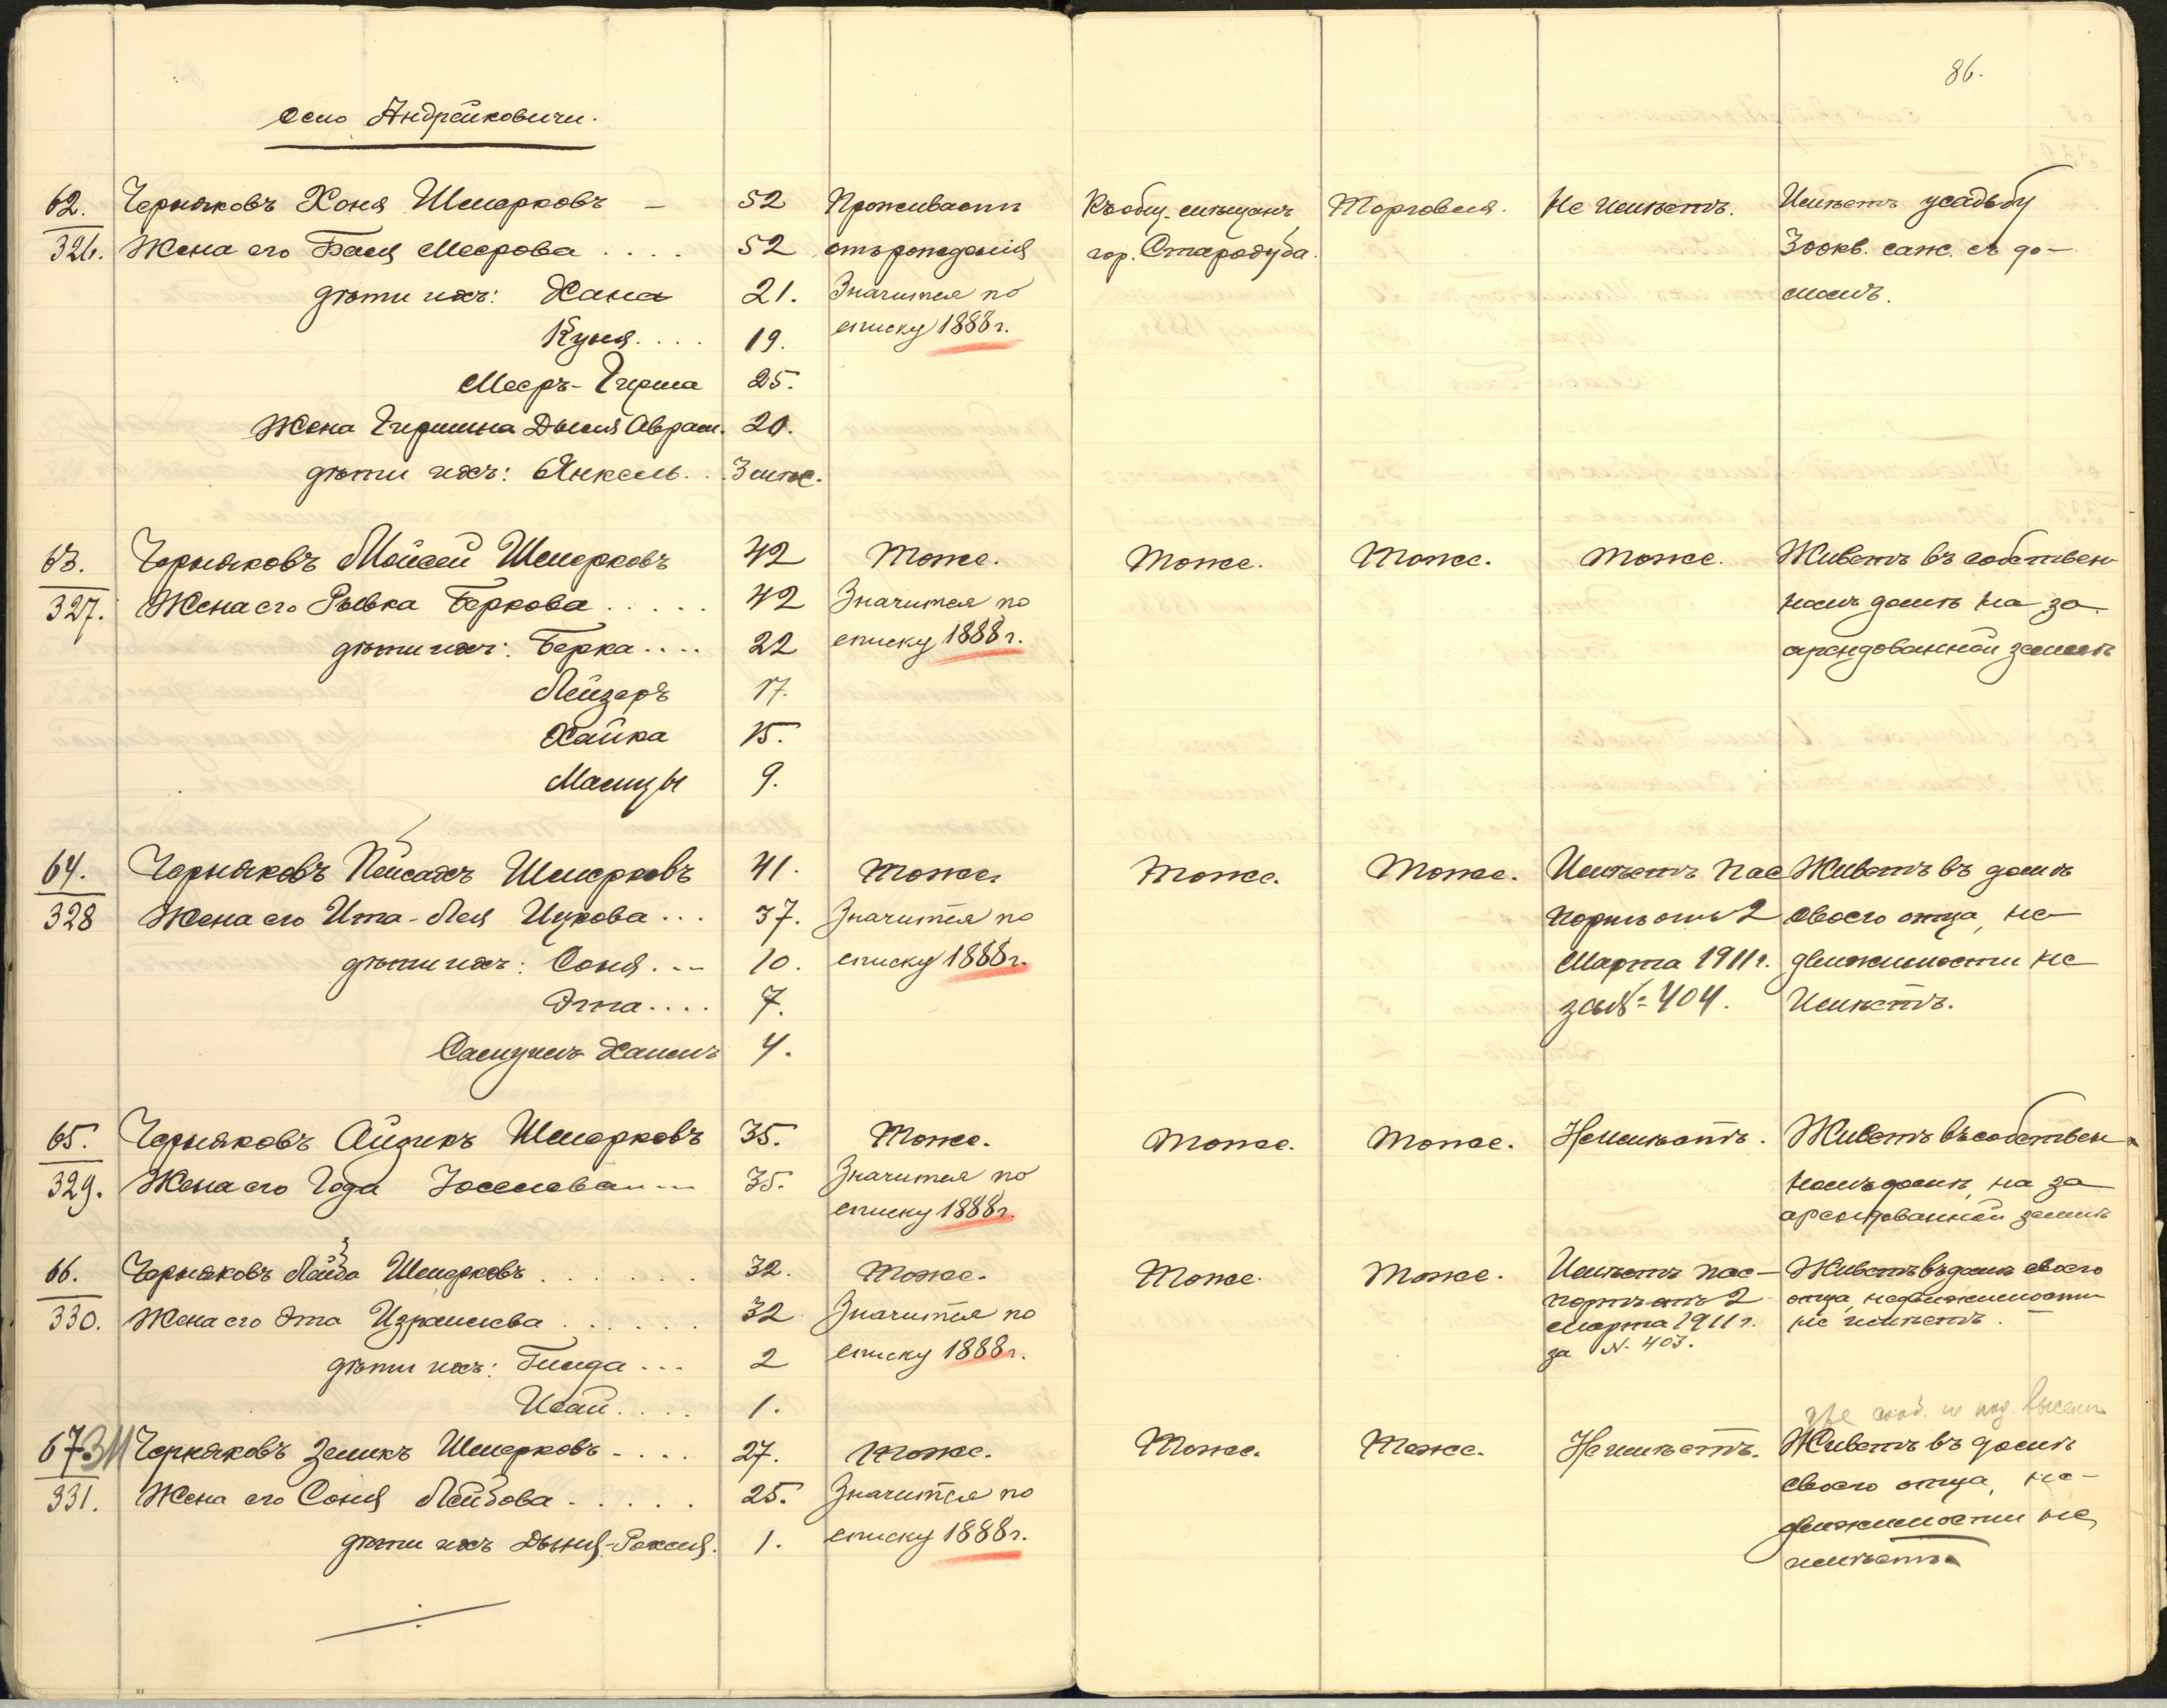 86.
Село Андрейковичи.
62. Черняковъ Хоня Шмерковъ – 52 Проживаетъ Къ общ. мѣщанъ Торговля. Не имѣетъ. Имѣетъ усадьбу
326. Жена его Бася Меерова .... 52 отъ рожденія гор. Стародуба. 300 кв. саж. съ до-
дѣти ихъ: Хана 21. Значится по момъ.
Куня .... 19. списку 1888 г.
Мееръ-Гирша 25.
Жена Гиршина Дыня Аврам. 20.
дѣти ихъ: Янкель... 3 мѣс.
63. Черняковъ Мойсей Шмерковъ 42 Тоже. Тоже. Тоже. Тоже. Живетъ въ собствен-
327. Жена его Рывка Беркова ..... 42 Значится по номъ домѣ на за-
дѣти ихъ: Берка .... 22 списку 1888 г. арендованной землѣ
Лейзеръ 17.
Хайка 15.
9.
64. Черняковъ Пейсахъ Шмерковъ 41. Тоже. Тоже. Тоже. Имѣетъ пас Живетъ въ домѣ
328 Жена его Ита-Лея Ицкова ... 37. Значится по портъ отъ 2 своего отца, не-
дѣти ихъ: Соня .... 10. списку 1888 г. Марта 1911 г. движимости не
Эта .... 7. за № 404. имѣетъ.
Самуилъ Хаимъ 4.
65. Черняковъ Айзикъ Шмерковъ 35. Тоже. Тоже. Тоже. Не имѣетъ. Живетъ въ собствен-
329. Жена его Года Иоселева .... 35. Значится по номъ домѣ, на за
списку 1888 г. арендованной землѣ
66. Черняковъ Лейба Шмерковъ ...... 32. Тоже. Тоже. Тоже. Имѣетъ пас- Живетъ въ домѣ своего
330. Жена его Эта Израилева ...... 32 Значится по портъ отъ 2 отца, недвижимости
дѣти ихъ: Гинда ... 2 списку 1888 г. Марта 1911 г. не имѣетъ.
за №. 403.
Исай .... 1.
67. Черняковъ Земикъ Шмерковъ .... 27. Тоже. Тоже. Тоже. Не имѣетъ. Живетъ въ домѣ
331. Жена его Соня Лейбова ...... 25. Значится по своего отца, не-
дѣти ихъ Дыня- 1. списку 1888 г. движимости не
имѣетъ.